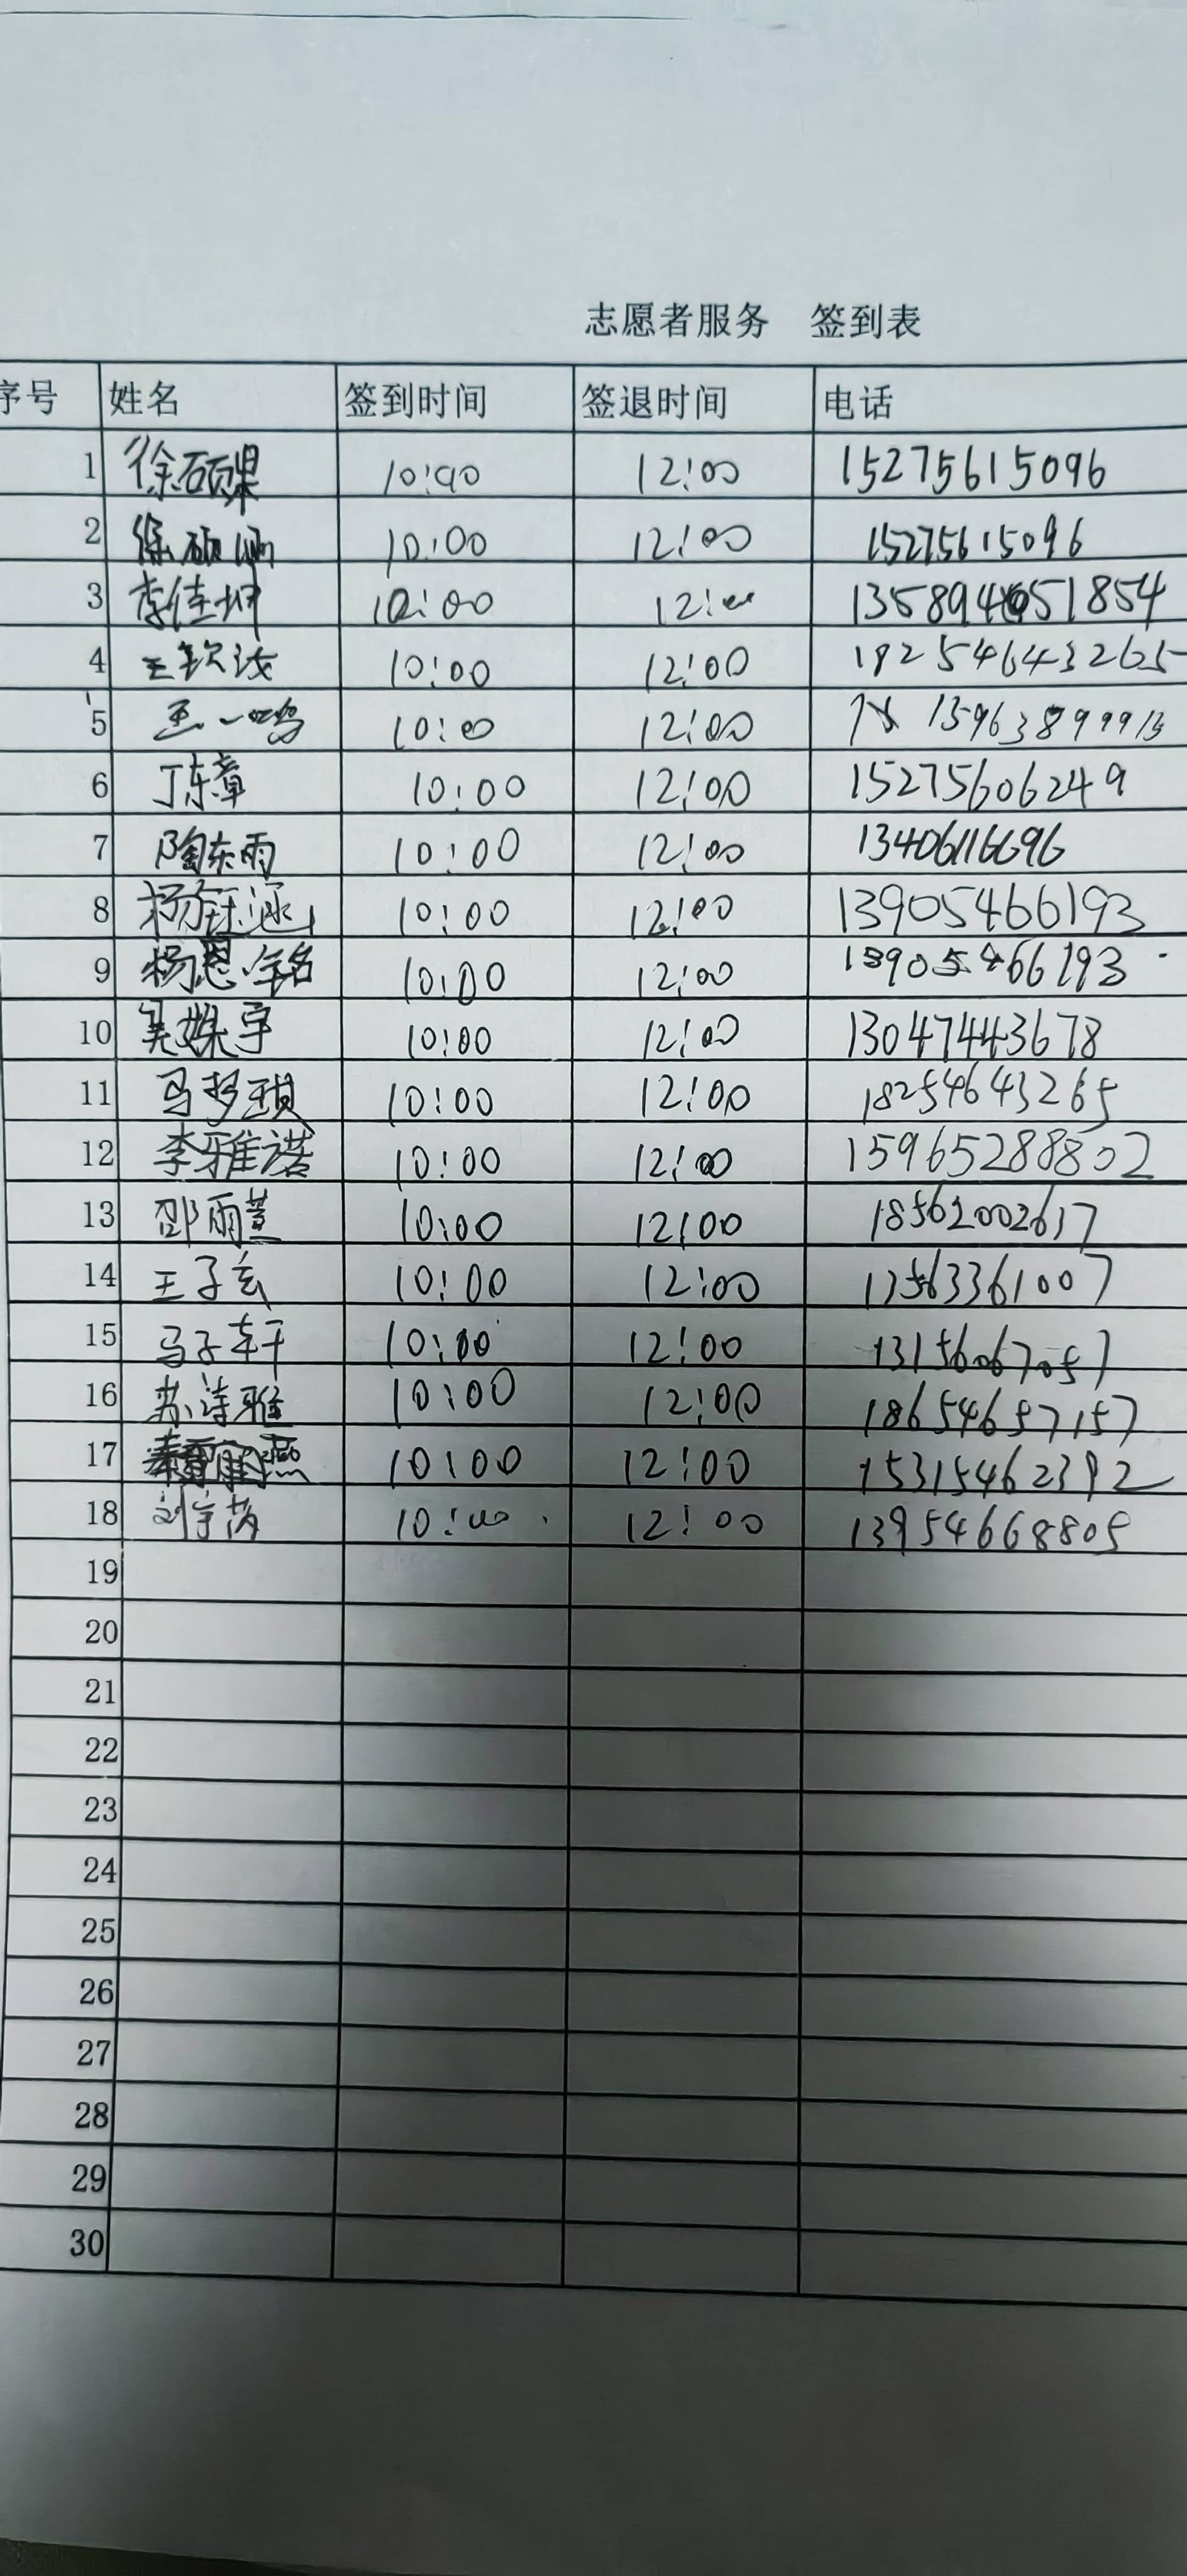 志愿者服务 签到表
序号 姓名 签到时间 签退时间 电话
1 徐硕果 10:00 12:00 15275615096
2 徐硕涵 10:00 12:00 15275615096
3 李佳坤 10:00 12:00
4 王钦 10:00 12:00 18254643265
5 王一鸣 10:00 12:00
6 丁东章 10:00 12:00 15275606249
7 陶东雨 10:00 12:00 13406116696
8 杨钰涵 10:00 12:00 13905466193
9 杨恩 10:00 12:00 13905466193
10 吴姝宇 10:00 12:00 13047443678
11 马梦琪 10:00 12:00 18254643265
12 李雅诺 10:00 12:00 15965288802
13 邵雨萱 10:00 12:00 18562002617
14 王子玄 10:00 12:00 13563361007
15 马子轩 10:00 12:00 13156067057
16 苏诗雅 10:00 12:00 18654657157
17 10:00 12:00 15315462392
18 刘宇 10:00 12:00 13954668805
19
20
21
22
23
24
25
26
27
28
29
30